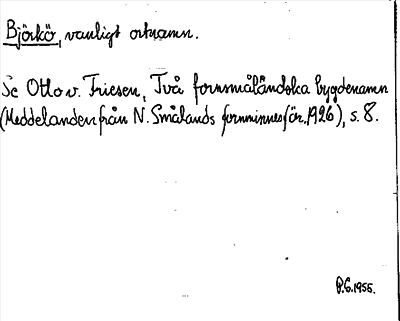 Björkö, vanligt ortnamn.
Se Otto v. Friesen, Två fornsmåländska bygdenamn
(Meddelanden från N. Smålands fornminnesför. 1926), s. 8.
P.G. 1955.